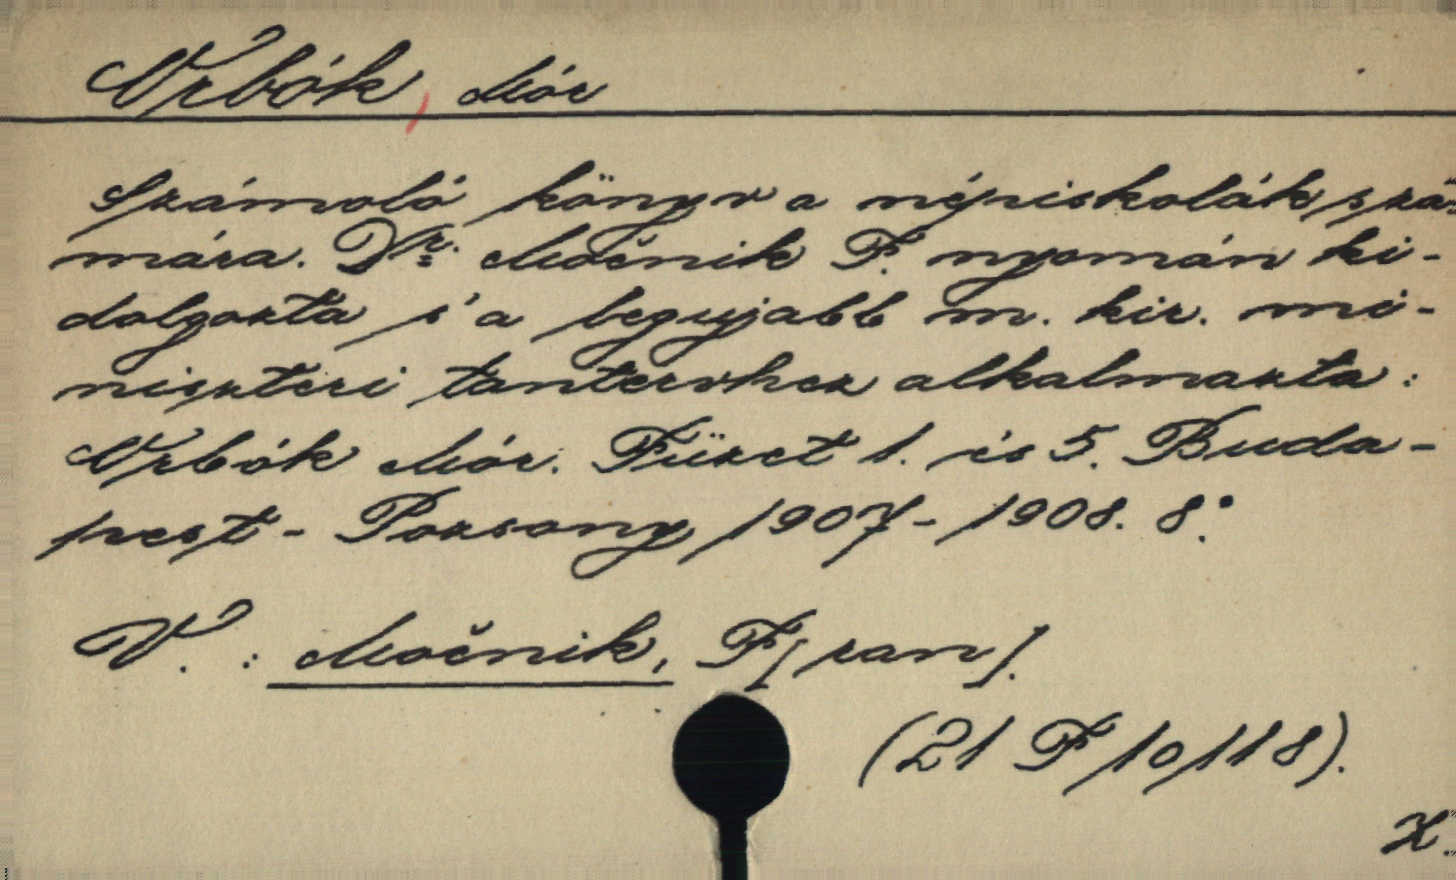 Vrbók, Mór
Számoló könyv a népiskolák szá-
mára. Dr. Močnik F. nyomán ki-
dolgozta s' a legujabb m. kir. mi-
niszteri tantervhez alkalmazta:
Vrbók Mór. Füzet 1. és 5. Buda-
pest - Pozsony, 1907 - 1908. 8°.
V.: Močnik, F[ran].
(21 F/10/118).
K.